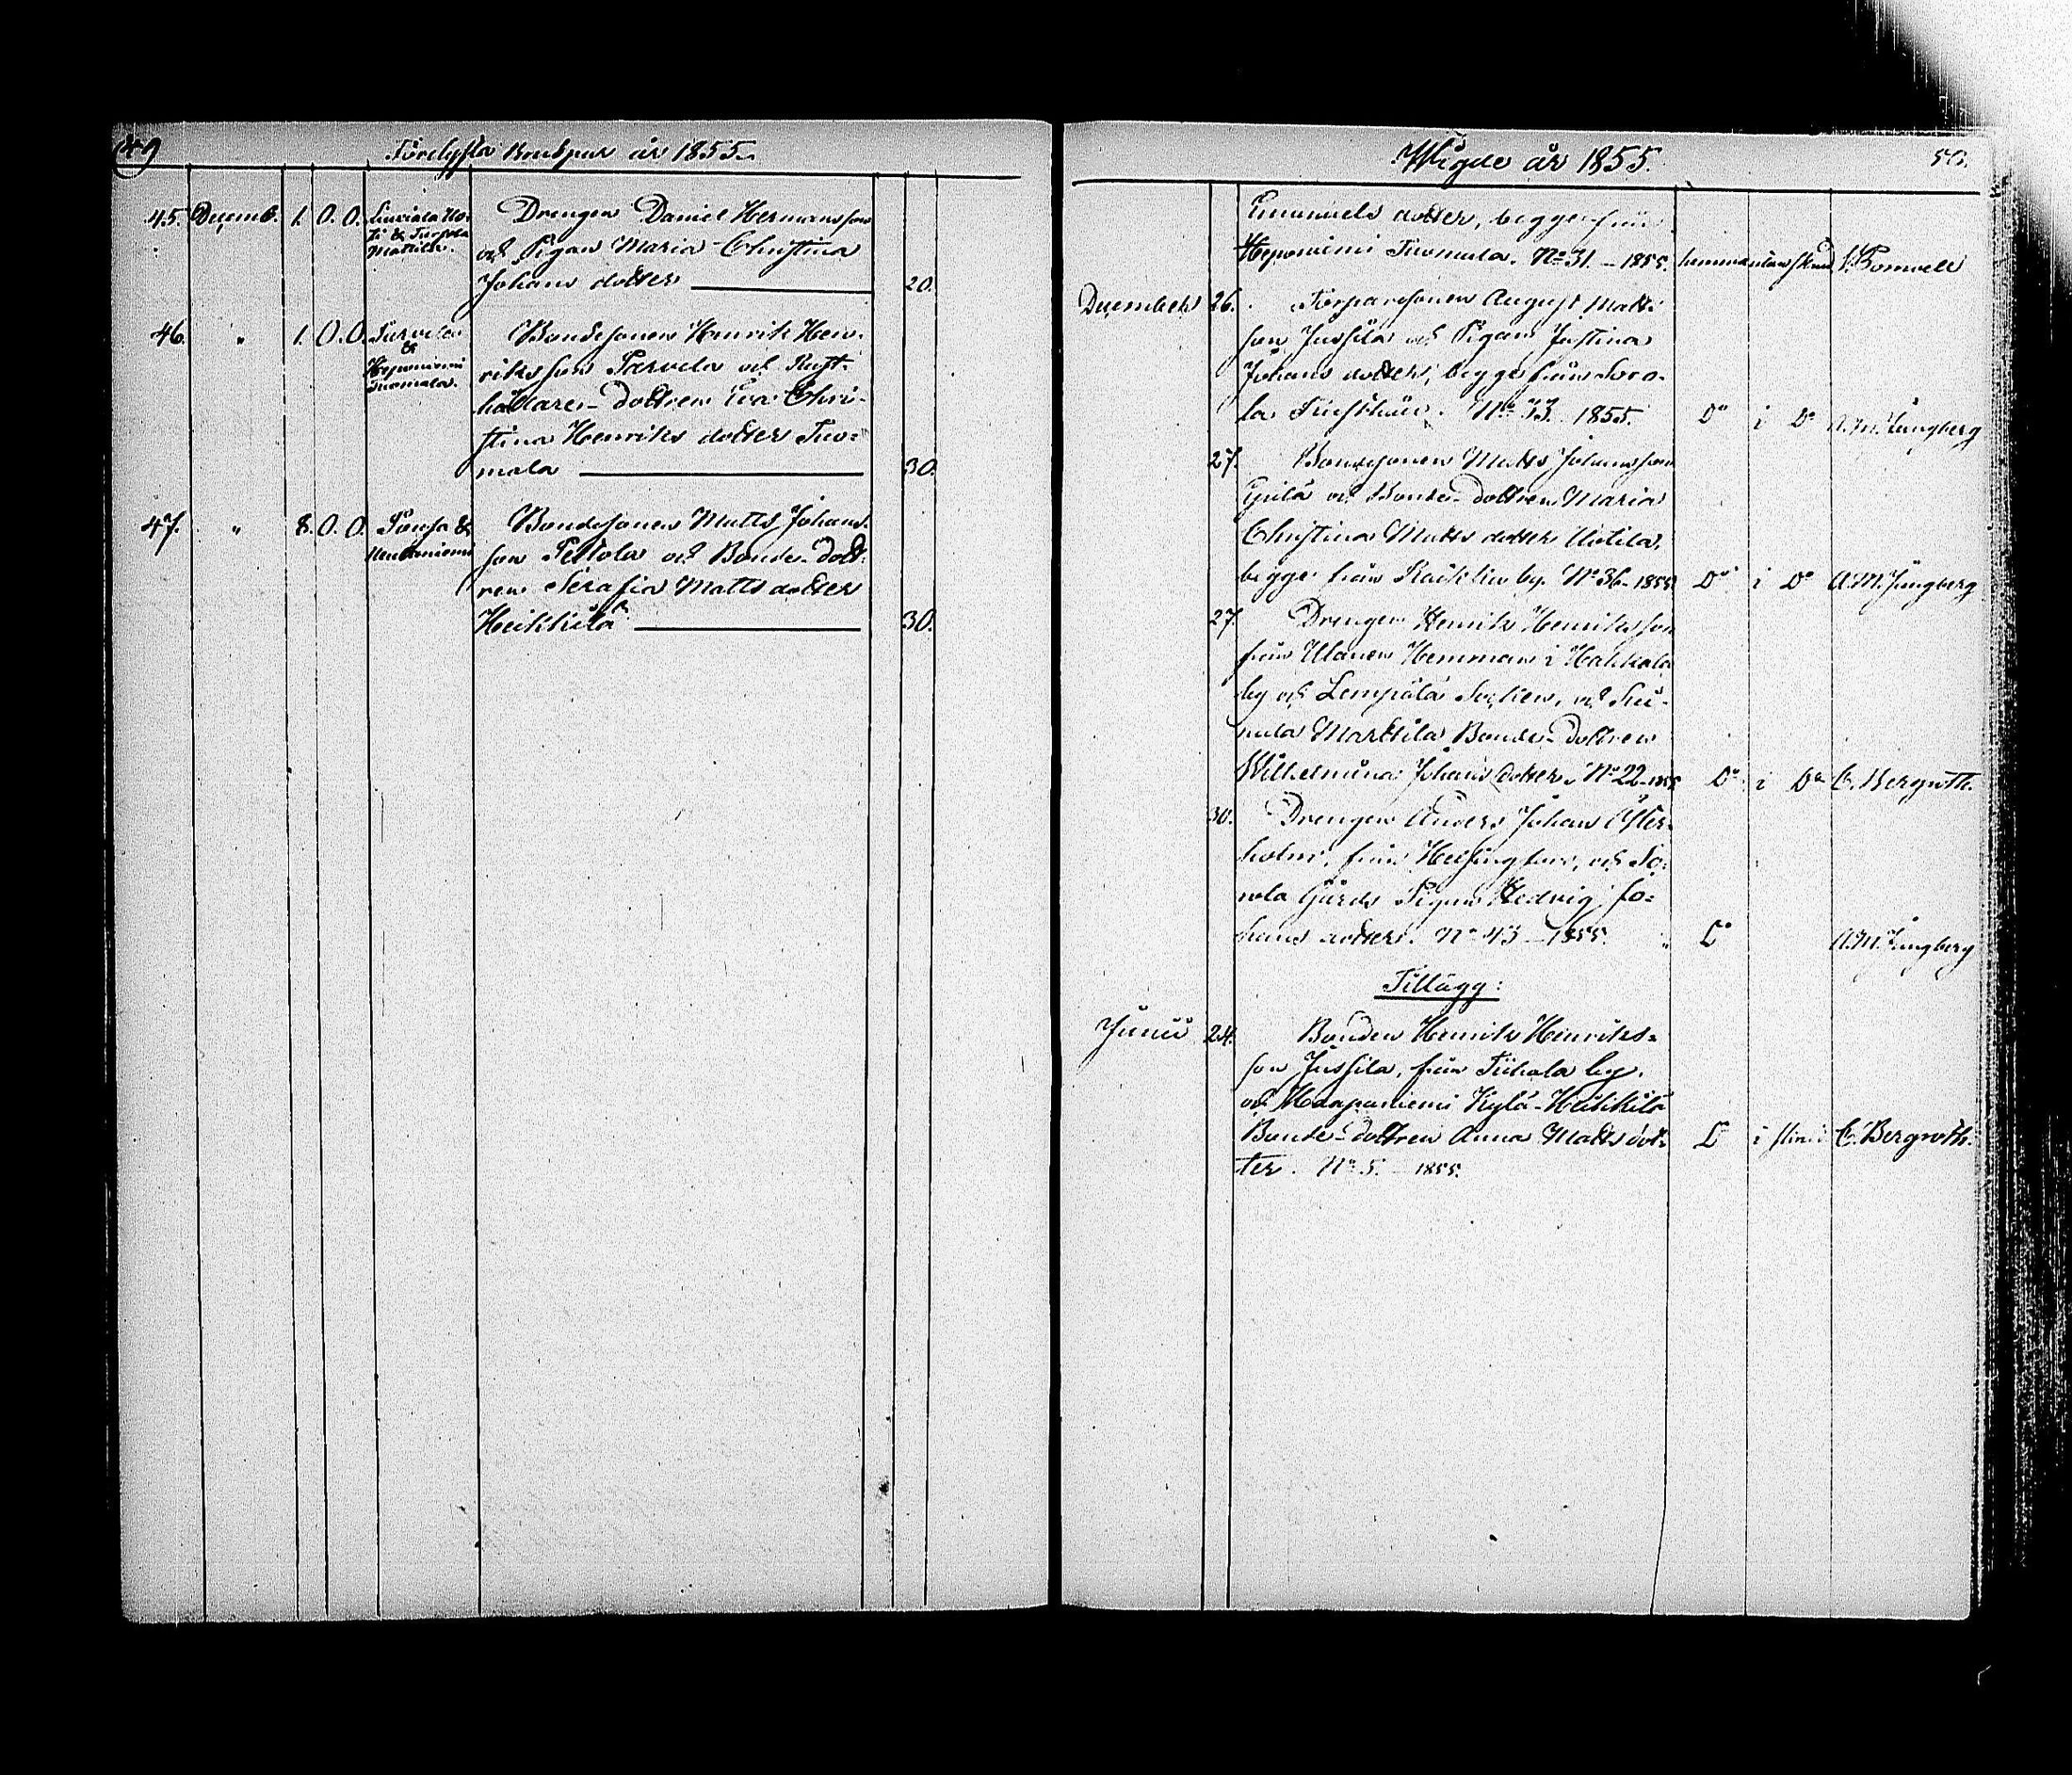 49
Förelysta Brudpar år 1855.
45. Decemb. 1. 0. 0.
& Turpola
Mattila.
Drengen Daniel Hermansson
och Pigan Maria Christina
Johans dotter 20.
46. " 1. 0. 0. Tarvela
&
Heponiemi
Tuomala.
Bondesonen Henrik Hen-
riksson Tarvela och Rust-
hållare-dottren Eva Chri-
stina Henriks dotter Tuo-
mala 30.
47. " 8. 0. 0.
Bondesonen Matts Johans-
son Peltola och Bonde-dott-
ren Serafia Matts dotter
Heikkilä 30.
Wigde år 1855.
50.
Emanuels dotter, begge från
Heponiemi Tuomala. No 31. - 1855.
December 26. Torparesonen August Matts-
son Jussila och Pigan Justina
Johans dotter, begge från Soro-
la No 33. 1855. Do i Do A.M. Ljungberg
27. Bondesonen Matts Johansson
och Bonde-dottren Maria
Christina Matts dotter Uotila,
begge från by. No 36-1855. Do i Do A.M. Ljungberg
27. Drengen Henrik Henriksson
från Hemman i Hakkala
by och Lempälä Socken, och
Marttila Bonde-dottren
Wilhelmina Johans dotter. No 22-1855. Do i Do C. Bergroth.
30. Drengen Anders Johan Öster-
holm, från Helsingfors, och So-
rola Gårds Pigan Hedvig Jo-
hans dotter. No 43 - 1855. " Do A.M. Ljungberg
Tillägg:
Junii 24. Bonden Henrik Henriks-
son Jussila, från by.
och Haapaniemi Kylä-Heikkilä
Bonde-dottren Anna Matts dot-
ter. No 5. - 1855. Do i C. Bergroth.